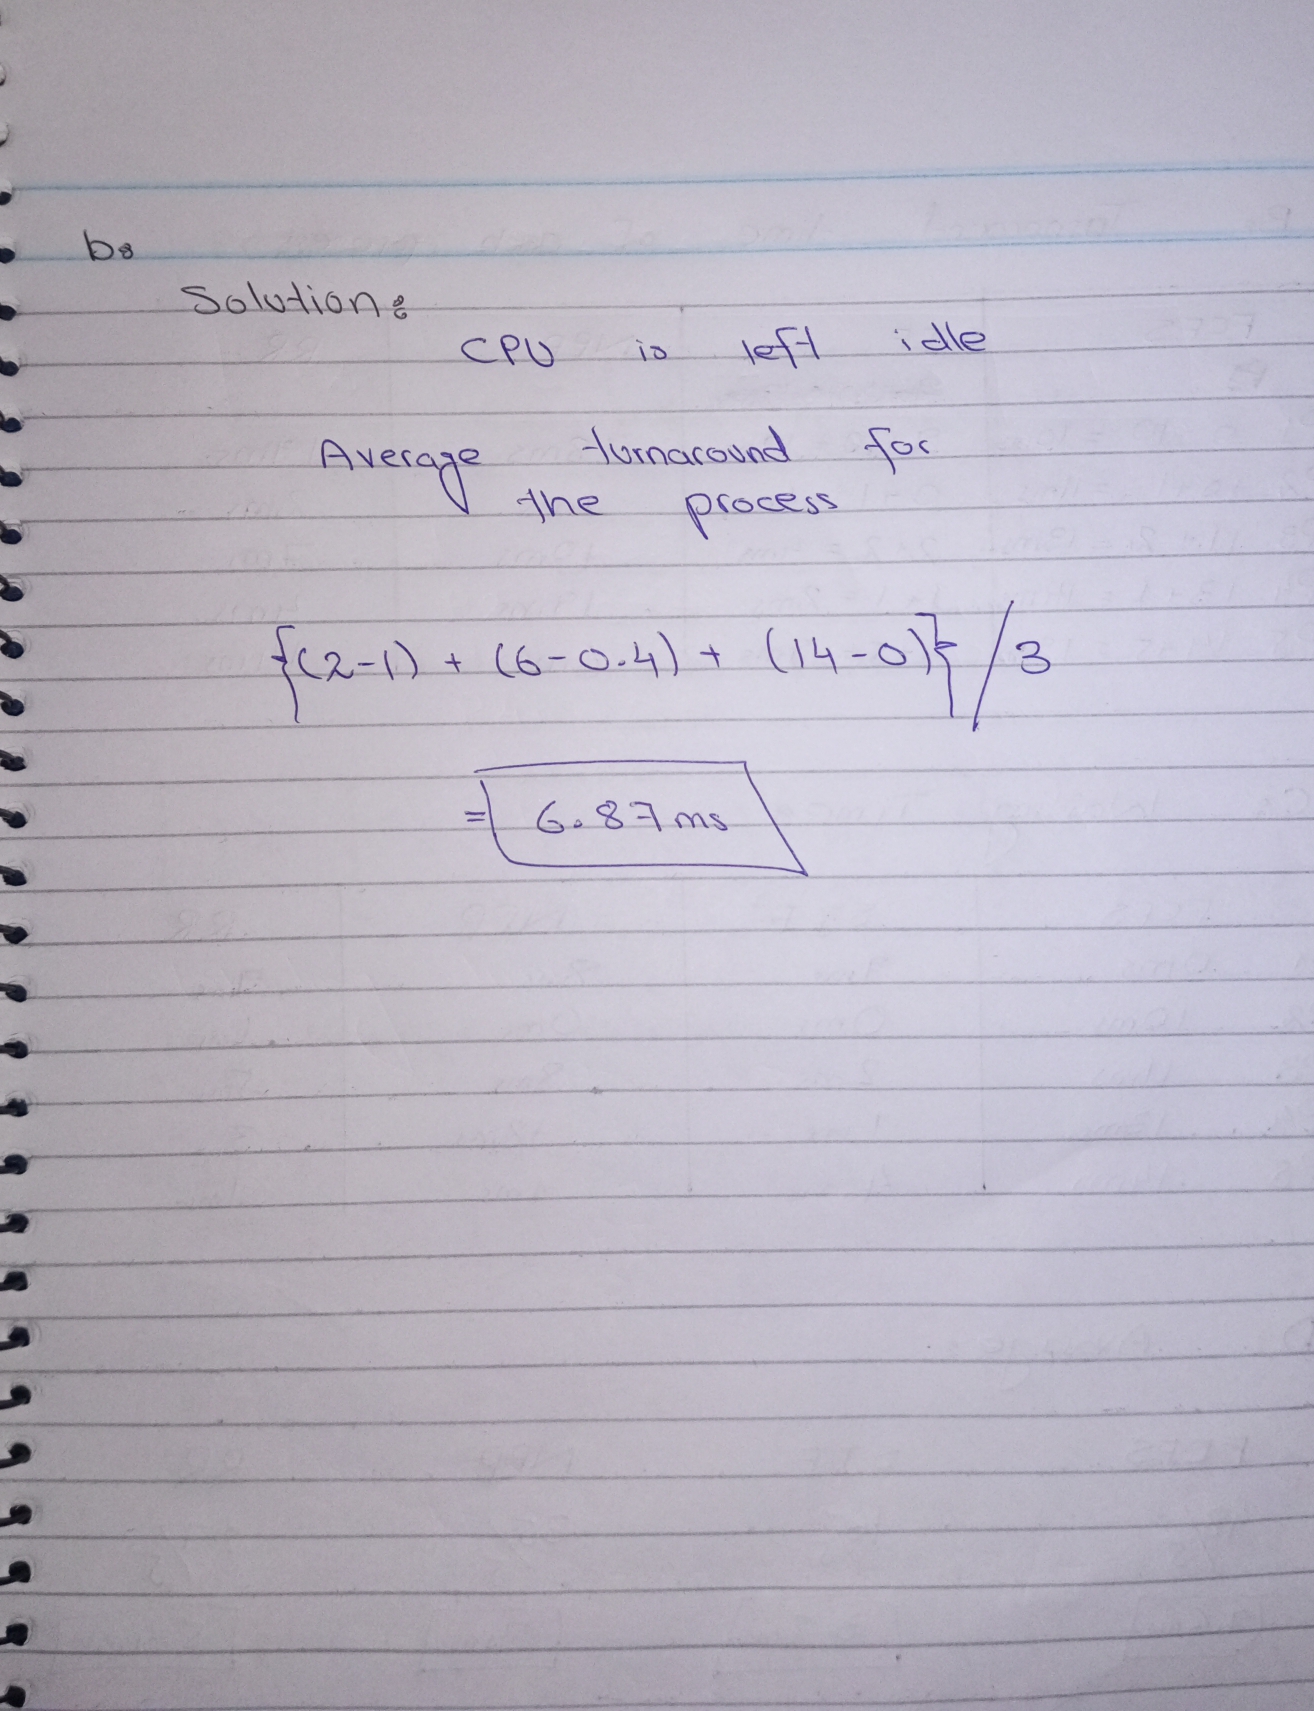 b:
Solution:
CPU is left idle
Average turnaround for
the process
{(2-1) + (6-0.4) + (14-0)} / 3
= 6.87ms